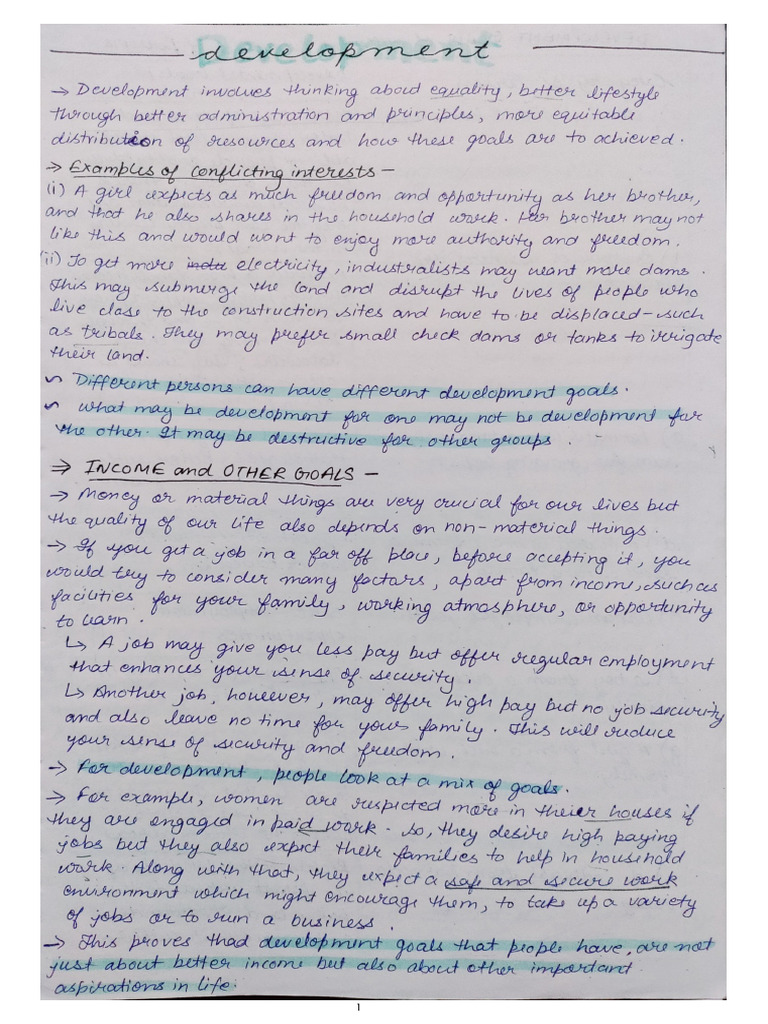 development
→ Development involves thinking about equality, better lifestyle
through better administration and principles, more equitable
distribution of resources and how these goals are to achieved.
→ Examples of conflicting interests -
(i) A girl expects as much freedom and opportunity as her brother,
and that he also shares in the household work. Her brother may not
like this and would want to enjoy more authority and freedom.
(ii) To get more electricity, industralists may want more dams.
This may submerge the land and disrupt the lives of people who
live close to the construction sites and have to be displaced - such
as tribals. They may prefer small check dams or tanks to irrigate
their land.
~ Different persons can have different development goals.
~ what may be development for one may not be development for
the other. It may be destructive for other groups.
⇒ INCOME and OTHER GOALS -
→ Money or material things are very crucial for our lives but
the quality of our life also depends on non-material things.
→ If you get a job in a far off place, before accepting it, you
would try to consider many factors, apart from income, such as
facilities for your family, working atmosphere, or opportunity
to learn.
↳ A job may give you less pay but offer regular employment
that enhances your sense of security.
↳ Another job, however, may offer high pay but no job security
and also leave no time for your family. This will reduce
your sense of security and freedom.
→ For development, people look at a mix of goals.
→ For example, women are respected more in their houses if
they are engaged in paid work. So, they desire high paying
jobs but they also expect their families to help in household
work. Along with that, they expect a safe and secure work
environment which might encourage them, to take up a variety
of jobs or to run a business.
→ This proves that development goals that people have, are not
just about better income but also about other important
aspirations in life.
1